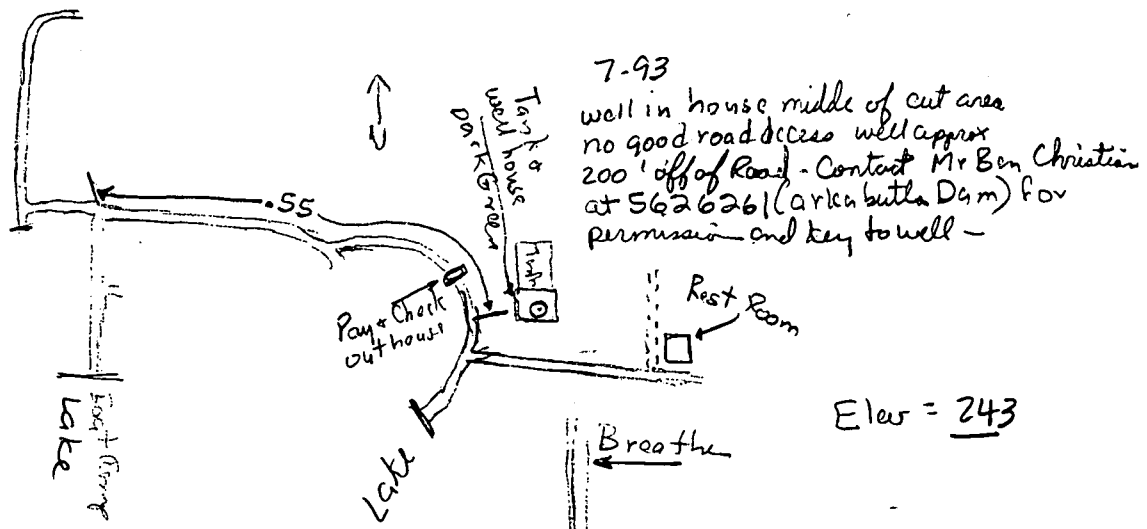 7-93
well in house middle of cut area
no good road access well approx
200' off of Road - Contact Mr Ben Christian
at 5626261 (arkabutla Dam) for
permission and key to well -
.55
Tank &
well house
Dark Green
Tank
Pay & Check
out house
Rest Room
Elev = 243
Breathe
Lake
Boat Ramp
Lake